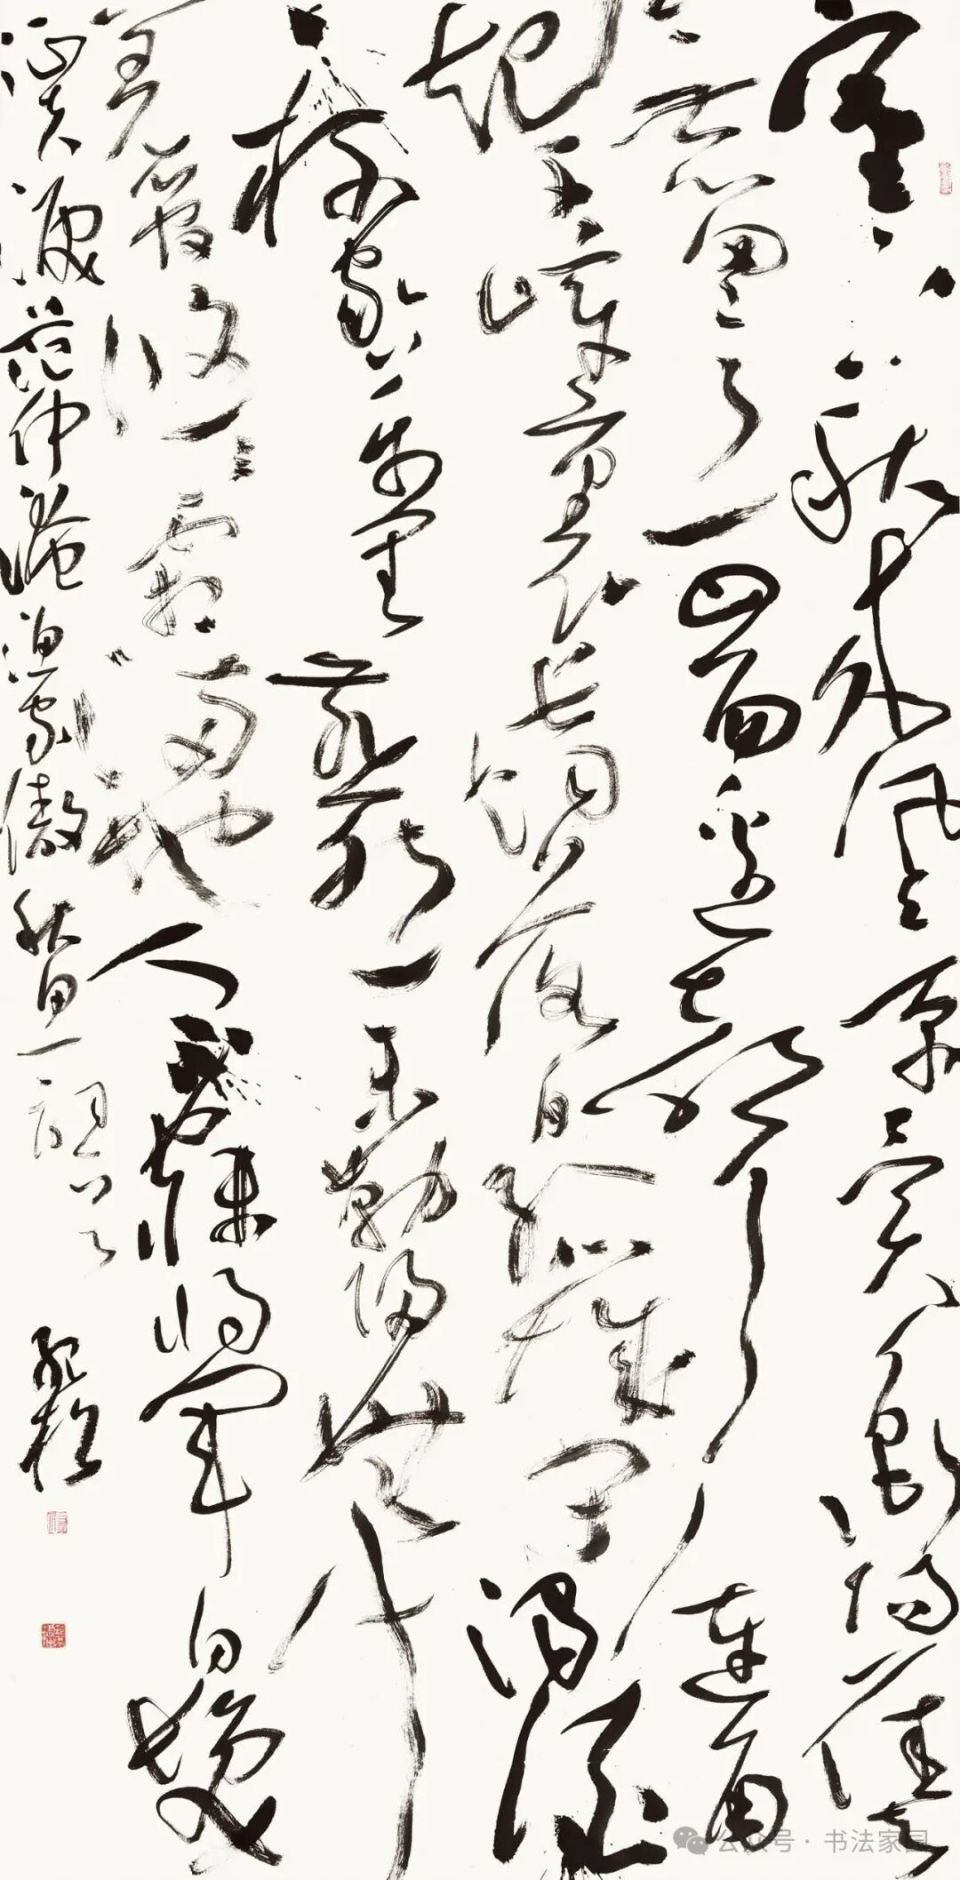 塞下秋来风景异衡阳雁去
无留意四面边声连角
起千嶂里长烟落日孤城闭浊酒
一杯家万里燕然未勒归无计
羌管悠悠霜满地人不寐将军白发
征夫泪范仲淹渔家傲秋思一词
公众号·书法家园